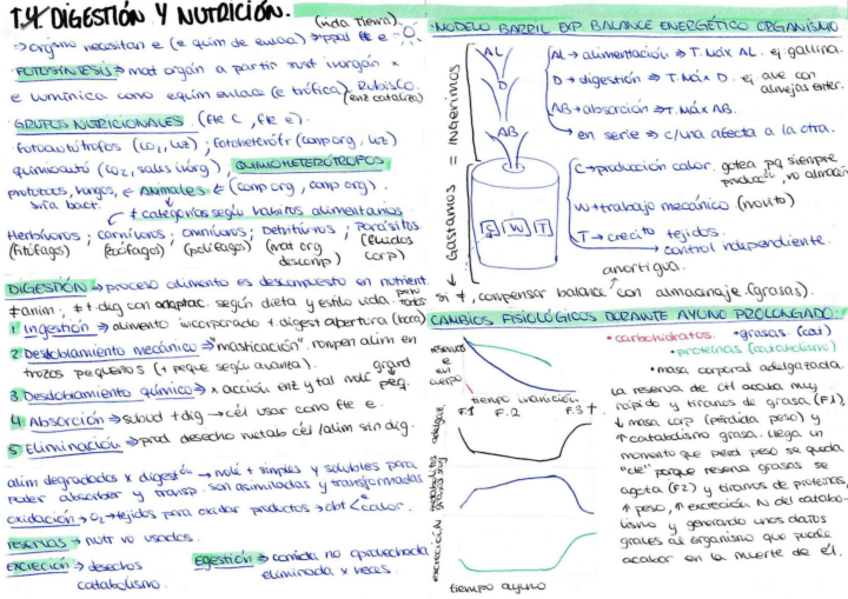 T.4. DIGESTIÓN Y NUTRICIÓN. (vida Tierra)
→ orgsmo necesitan e (e quim de enlace) → ppal fte e →
FOTOSÍNTESIS → mat orgán a partir sust inorgán x
e lumínica como equim enlace (e trófica) RubisCo.
(enz cataliza)
GRUPOS NUTRICIONALES. (fte C, fte e).
fotoautótrofos (CO₂, luz); fotoheterótr (comp org, luz)
quimioautó (CO₂, sales inórg), QUIMIOHETERÓTROFOS
protozoos, hongos, ← Animales ← (comp org, comp org).
bact.
≠ categorías según hábitos alimentarios
Herbívoros; carnívoros; omnívoros; Detritívoros; Parásitos
(fitófagos) (zoófagos) (polífagos) (mat org descomp) (fluidos corp)
DIGESTIÓN → proceso alimento es descompuesto en nutrient.
≠ anim; ≠ + dig con adaptac. según dieta y estilo vida. pero todos
1 Ingestión → alimento incorporado t.digest abertura (boca)
2 Desdoblamiento mecánico → "masticación". rompen alim en
trozos pequeños (+ peque según avanza).
3 Desdoblamiento químico → x acción enz y tal molé grand peq.
4 Absorción → subud + dig → cél usar como fte e.
5 Eliminación → prod desecho metab cél / alim sin dig.
alim degradados x digestón → molé + simples y solubles para
poder absorber y transp. son asimiladas y transformadas
oxidación → O₂ → tejidos para oxidar productos → obt < e calor.
reservas → nutr no usados.
excreción → desechos catabolismo.
Egestión → comida no aprovechada
eliminada x heces.
MODELO BARRIL EXP BALANCE ENERGÉTICO ORGANISMO
Gastamos = Ingerimos
AL
D
AB
AL → alimentación → T. Máx AL. ej gallina.
D → digestión → T. Máx D. ej. ave con
almejas enter.
AB → absorción → T. Máx AB.
→ en serie → c/una afecta a la otra.
C W T
C → producción calor. gotea pq siempre
producc, no almacén
W → trabajo mecánico (movito)
T → crecito tejidos.
→ control independiente.
anortigua.
si ≠, compensar balance con almacenaje. (grasas).
CAMBIOS FISIOLÓGICOS DURANTE AYUNO PROLONGADO:
• carbohidratos. • grasas. (cat)
• proteínas (catabolismo)
• masa corporal adelgazada.
reservas e en cuerpo
tiempo inanición.
F.1 F.2 F.3 †
adelgaz.
excreción
tiempo ayuno
la reserva de CH acaba muy
rápido y tiramos de grasa (F1),
↓ masa corp (pérdida peso) y
↑ catabolismo grasa. llega un
momento que perd peso se queda
"cte" porque reserva grasas se
agota (F2) y tiramos de proteínas,
↑ peso, ↑ excreción N del catabo-
lismo y generando unos daños
grales al organismo que puede
acabar en la muerte de él.